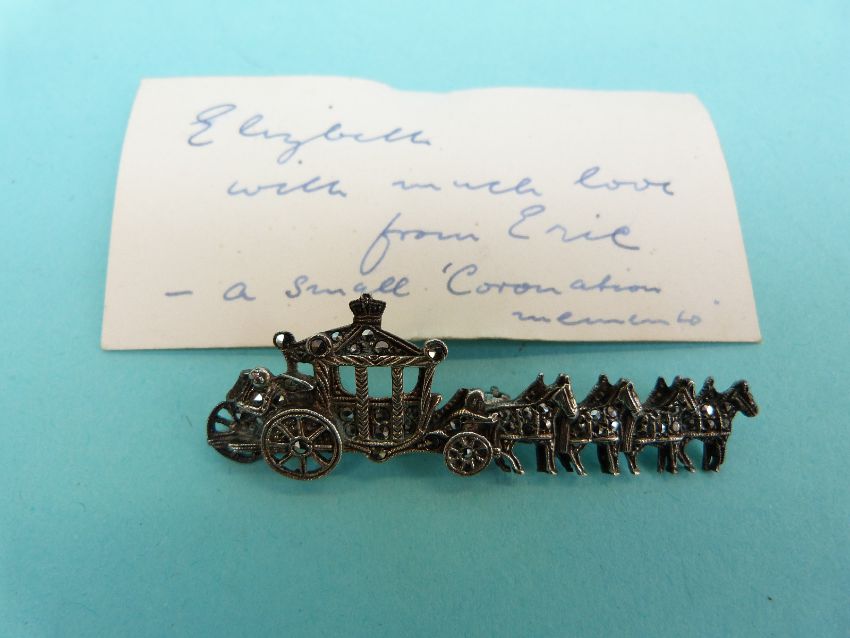 Elizabeth
with much love
from Eric
- a small 'Coronation
memento'